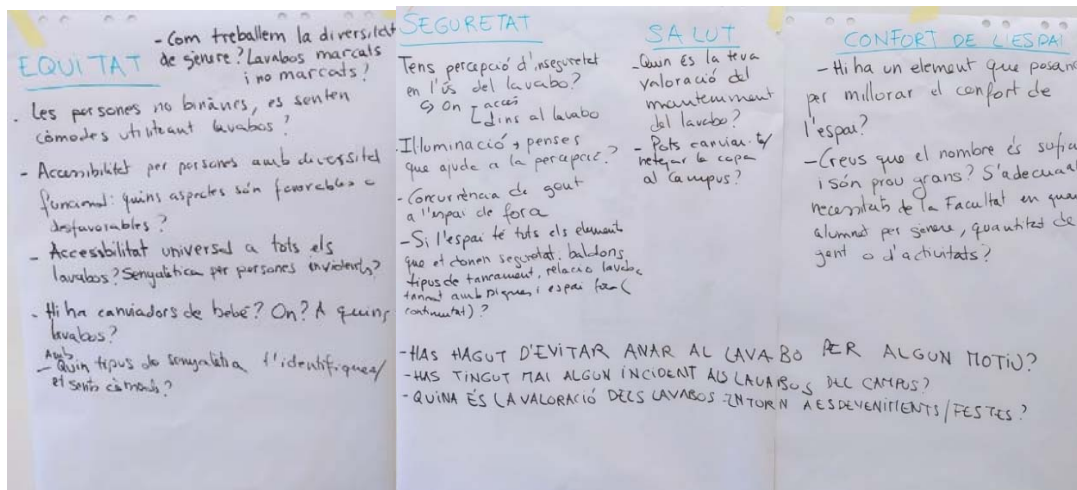 EQUITAT
- Com treballem la diversitat
de gènere? Lavabos marcats
i no marcats?
. Les persones no bináries, es senten
còmodes utilitzant lavabos?
- Accessibilitat per persones amb diversitat
funcional: quins aspectes són favorables o
desfavorables?
- Accessibilitat universal a tots els
lavabos? Senyalística per persones invidents?
- Hi ha canviadors de bebé? On? A quins
lavabos?
- Amb
Quin tipus de senyalística t'identifiques/
et sents còmode?
SEGURETAT
Tens percepció d'inseguretat
en l'ús del lavabo?
↳ On [ accés
dins al lavabo
Il·luminació → penses
que ajuda a la percepció?
- Concurrència de gent
a l'espai de fora
- Si l'espai té tots els elements
que et donen seguretat, baldons,
tipus de tancament, relació lavabo
tancat amb piques i espai fora (
continuitat)?
SALUT
- Quin és la teva
valoració del
manteniment
del lavabo?
- Pots canviar-te/
netejar la copa
al Campus?
CONFORT DE L'ESPAI
- Hi ha un element que posaries
per millorar el confort de
l'espai?
- Creus que el nombre és sufici
i són prou grans? S'adecua a
necessitats de la Facultat en quan
alumnat per gènere, quantitat de
gent o d'activitats?
- HAS HAGUT D'EVITAR ANAR AL LAVABO PER ALGUN MOTIU?
- HAS TINGUT MAI ALGUN INCIDENT ALS LAVABOS DEL CAMPUS?
- QUINA ÉS LA VALORACIÓ DELS LAVABOS ENTORN A ESDEVENIMENTS/FESTES?